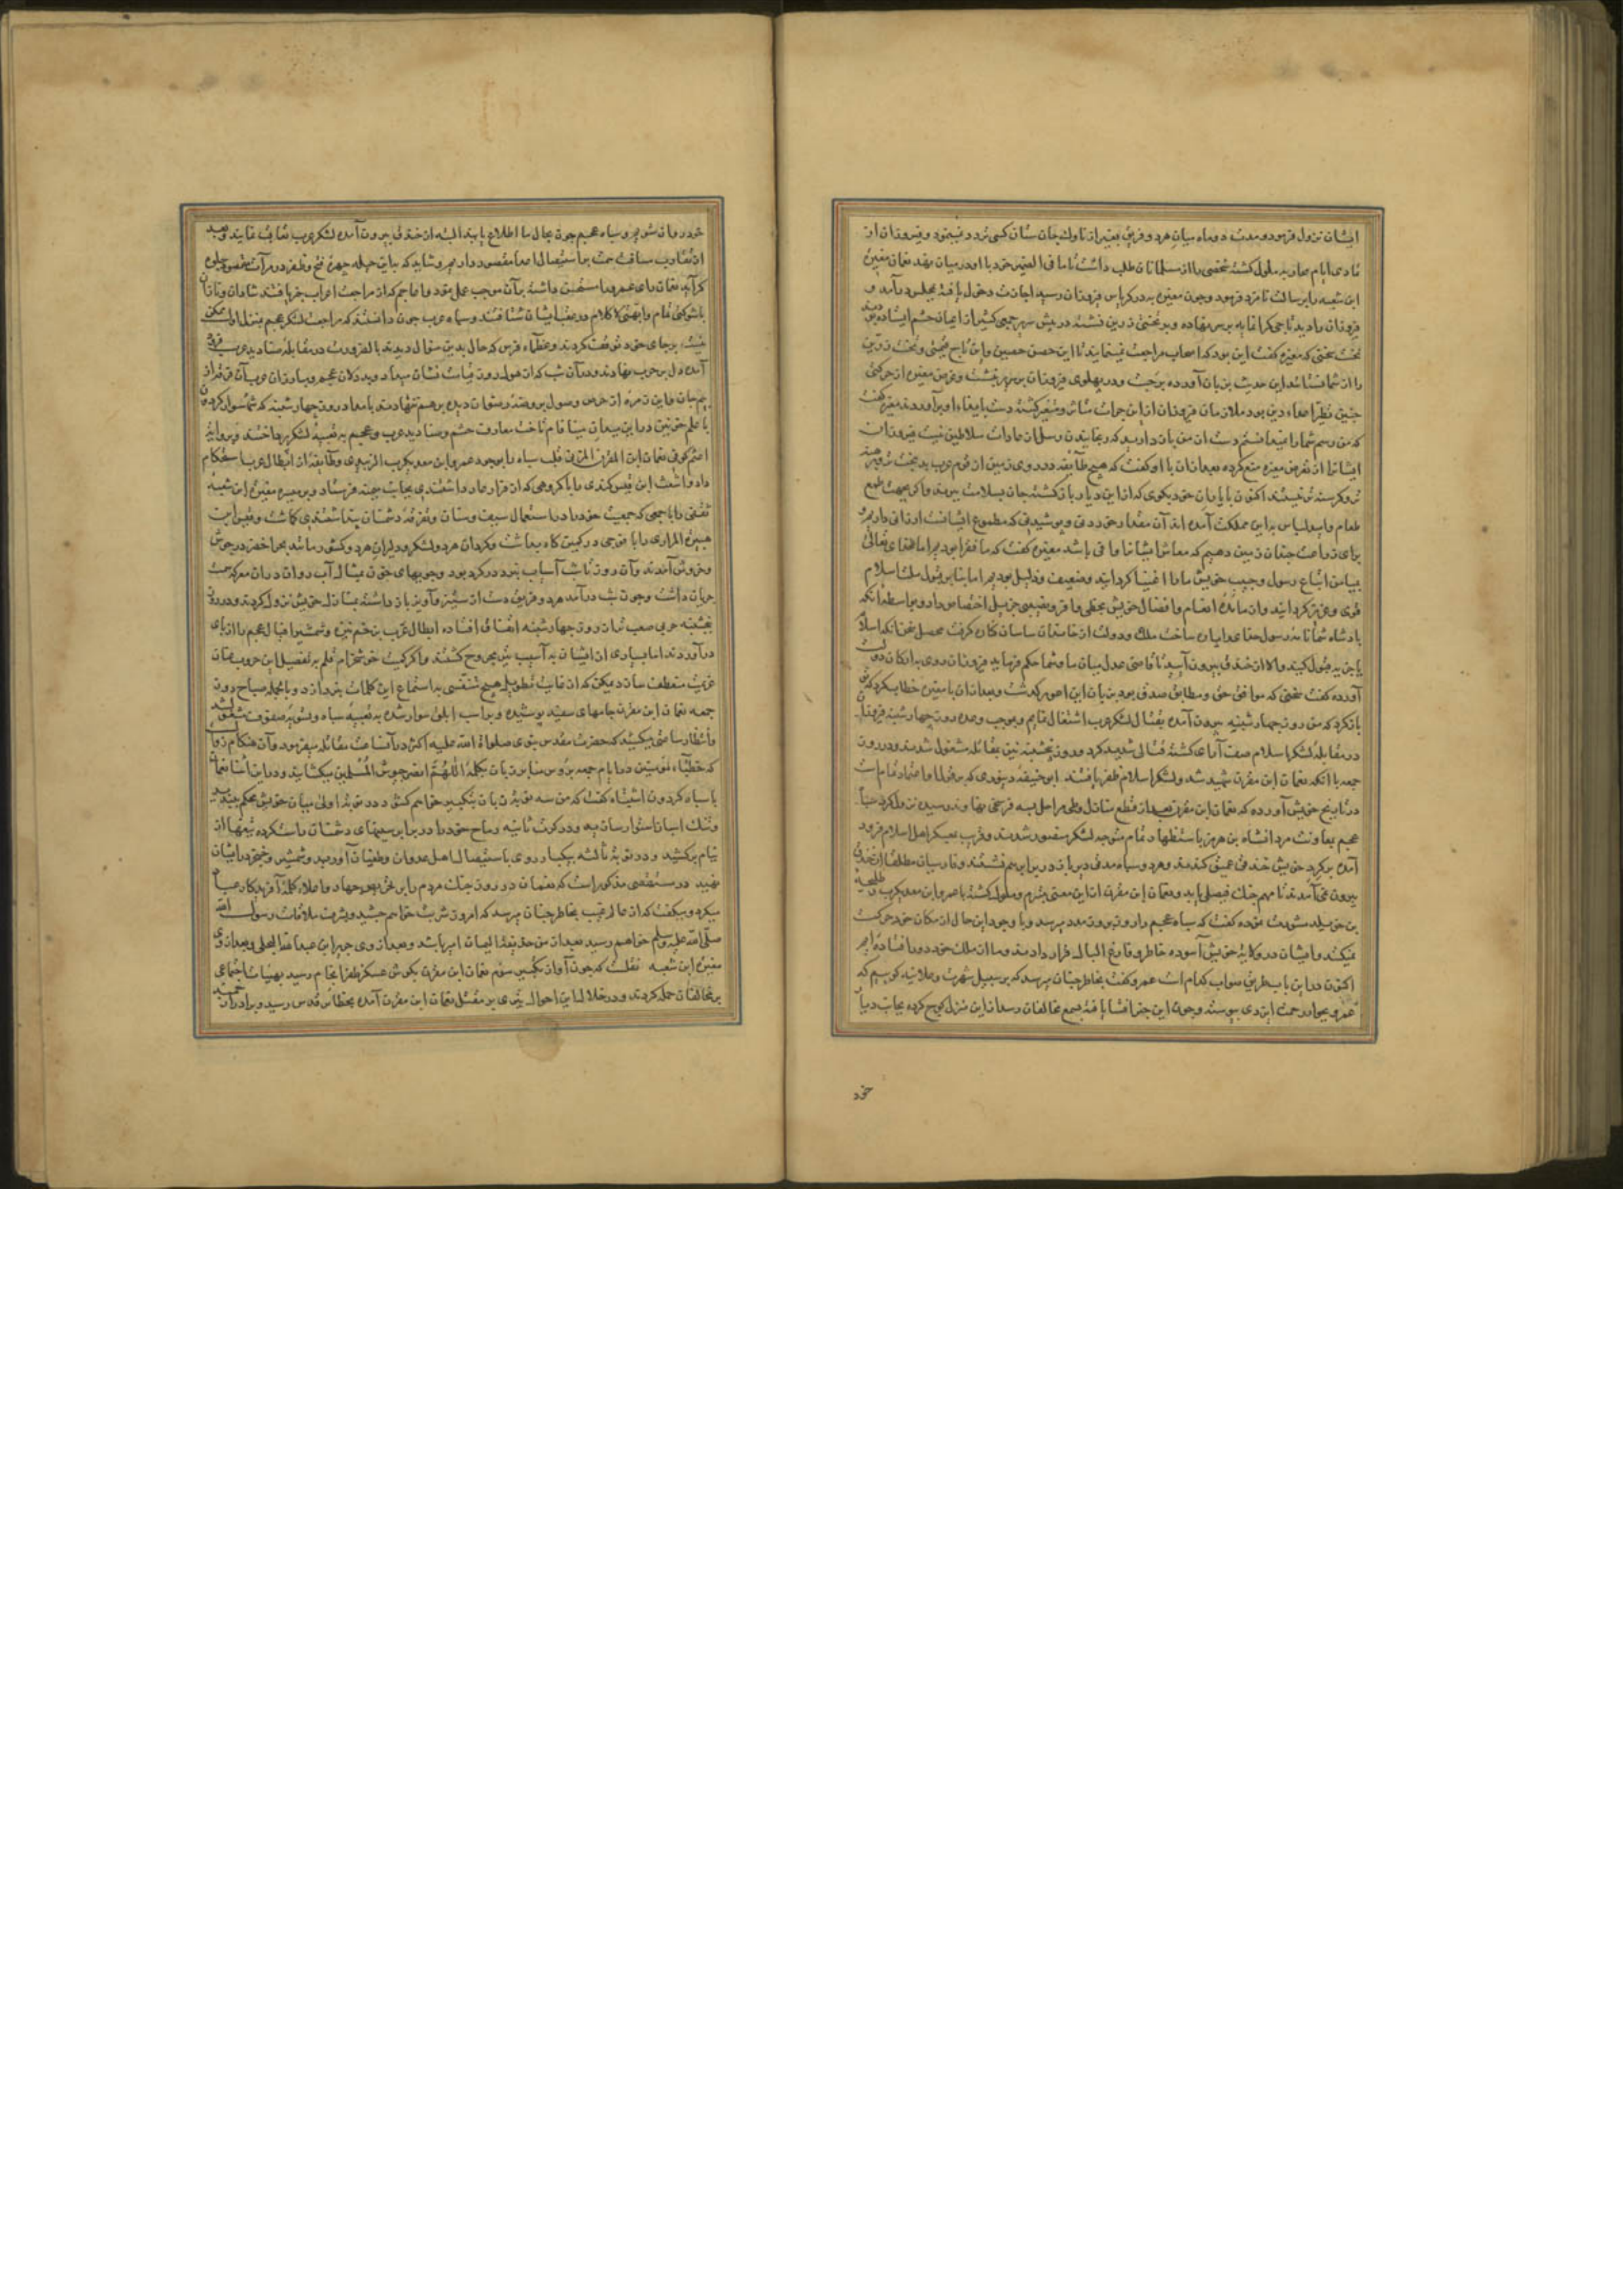 ایشان نزول فرمود و مدت دو ماه میان هر دو فریق بغیر از ناوک جان ستان کسی تردد نمینمود و فیروزان از
تمادی ایام محاربه ملول کشته شخصی را از مسلمانان طلب داشت تا ما فی الضمیر خود با او در میان نهد نعمان مغیرة
ابن شعبه را برسالت نامزد فرمود و چون مغیره بدر کریاس فیروزان رسید اجازت دخول یافته بمجلس درآمد و
فیروزان را دید تاجی کرانمایه بر سر نهاده و بر تختی زرین نشسته در پیش سریر جمعی کثیر از اعیان حشم ایستاده بودند
نخست سخنی که مغیره کفت این بود که اصحاب مراجعت نمینمایند تا این حصن حصین و این تاج ثمین و تخت زرین
را از شما نستانند این حدیث بزبان آورده برجست و در پهلوی فیروزان بر سریر نشست و غرض مغیره از حرکتی
چنین ملازمان فیروزان از این جرات متاثر و متغیر کشته دست بایذاء او برآوردند مغیره کفت
که من رسم شما را نمیدانستم دست از من باز دارید که رنجانیدن رسل از عادات سلاطین نیست فیروزان
ایشانرا از تعرض مغیره منع کرده بعد از آن با او کفت که هیچ طایفه در روی زمین از قوم عرب بدبخت تر و برهنه
تر و کرسنه تر نیستند اکنون با یاران خود بکوی که از این دیار باز کشته جان بسلامت بیرند و اکر بجهت طمع
طعام و لباس باین مملکت آمده اند آن مقدار خوردنی و پوشیدنی که مطموع ایشانست ارزانی داریم و
برای زراعت چندان زمین دهیم که معاش ایشانرا وافی باشد مغیره کفت که ما فقرا بودیم اما خدای تعالی
بیامن اتباع رسول و حبیب خویش ما را اغنیا کردانید و ضعیف و ذلیل بودیم اما بنابر قبول ملت اسلام
قوی و عزیز کردانید و از مائده انعام و افضال خویش بحظی وافر و نصیبی جزیل اختصاص داد و بواسطه آنکه
پادشاه شما نامه رسول خدای را پاره ساخت ملک و دولت از خاندان ساسان کران کرفت محصل سخن آنکه اسلام
یا جزیه قبول کنید و الا از خندق بیرون آیید تا قاضی عدل میان ما و شما حکم فرماید فیروزان روی بارکان دولت
آورده کفت سخنی که موافق حق و مطابق صدق بود بزبان این اعور کذشت و بعد از آن با مغیره خطاب کرد که تو
باز کرد که من روز چهارشنبه بیرون آمده بقتال لشکر عرب اشتغال نمایم و بموجب وعده روز چهارشنبه فیروزان
در مقابله لشکر اسلام صف آرای کشته قتالی شدید کرد و روز پنجشنبه نیز بمقاتله مشغول شدند و در روز
جمعه با آنکه نعمان ابن مقرن شهید شد و لشکر اسلام ظفر یافتند ابو حنیفه دینوری که بر قول او اعتماد تمام است
در تاریخ خویش آورده که نعمان ابن مقرن بعد از قطع منازل و طی مراحل بسه فرسخی نهاوند رسیده نزول کرد سپاه
عجم بمعاونت مردانشاه بن هرمز باستظهار تمام متوجه لشکر منصور شدند و قریب بعسکر اهل اسلام فرود
آمده بر کرد خویش خندقی عمیق کندند و هر دو سپاه مدتی دیرباز در برابر هم نشستند و فارسیان مطلقا از خندق
بیرون نمی آمدند تا مهم جنک فیصلی یابد و نعمان ابن مقرن از این معنی متبرم و ملول کشته با عمرو ابن معدیکرب و طلیحة
بن خویلد مشورت نموده کفت که سپاه عجم را روز بروز مدد میرسد و با وجود این حال از مکان خود حرکت
نمیکنند و ایشان در ولایت خویش آسوده خاطر و فارغ البال قرار دارند و ما از ملک خود دور افتاده ایم
اکنون در این باب طریق صواب کدام است عمرو کفت بخاطر چنان میرسد که بر سبیل شهرت و علانیه کوییم که
عمر بجوار رحمت ایزدی پیوسته و چون این خبر افشا یافته بسمع مخالفان رسد از این منزل کوچ کرده بجانب دیار
خود
خود روان شویم و سپاه عجم چون بحال ما اطلاع یابند البته از خندق بیرون آمده لشکر عرب تعاقب نمایند و بعد
از تقارب مسافت همت بر استیصال اعدا مقصور داریم و شاید که باین حیله چهره فتح و ظفر در مرآت مقصود جلوه
کر آید نعمان رای عمرو را مستحسن داشته بر آن موجب عمل نمود و اعاجم که از مراجعت اعراب خبر یافتند شادان و نازان
با شوکتی تمام و ابهتی لا کلام در عقب ایشان شتافتند و سپاه عرب چون دانستند که مراجعت لشکر عجم بمنزل اول ممکن
نیست بر جای خود توقف کردند و عظماء فرس که حال بدین منوال دیدند بالضرورت در مقابله صنادید عرب فرود
آمده دل بر حرب نهادند و در آن شب که از هول روز قیامت نشان میداد
با علم خونین در این میدان مینا فام تاخت معارف حشم و صنادید عرب و عجم به تعبیه لشکر پرداختند و بروایت
اعثم کوفی نعمان ابن المقرن المزنی قلب سپاه را بوجود عمرو ابن معدیکرب الزبیدی و طایفه از ابطال عرب استحکام
داد و اشعث ابن قیس کندی را با کروهی که از قرار عار داشتندی بجانب میمنه فرستاد و بر میسره مغیره ابن شعبه
ثقفی را با جمعی که جمعیت خود را در استعمال سیف و سنان و تفرقه دشمنان پنداشتندی کماشت و قیس ابن
هبیرة المرادی را با فوجی در کمین کاه بداشت و کردان هر دو لشکر و دلیران هر دو کشور مانند بحر اخضر در جوش
و خروش آمدند و آن روز تا شب آسیاب نبرد در کرد بود و جویهای خون بمثال آب روان در آن معرکه سمت
جریان داشت و چون شب درآمد هر دو فریق دست از ستیز و آویز باز داشته بمنازل خویش نزول کردند و در روز
پنجشنبه حربی صعب تر از روز چهارشنبه اتفاق افتاده ابطال عرب بزخم نیزه و شمشیر اقبال عجم را از پای
درآوردند اما بسیاری از ایشان به آسیب تیر مجروح کشتند و اکر کمیت خوش خرام قلم به تفصیل این حروب عنان
عزیمت منعطف سازد میکن که از غایت تطویل هیچ متنفسی به استماع این کلمات نپردازد و بالجمله صباح روز
جمعه نعمان ابن مقرن جامهای سفید پوشیده و بر اسب ابلق سوار شده به تعبیه سپاه و تسویه صفوف مشغول شد
و انتظار ساعتی میکشید که حضرت مقدس نبوی صلوات الله علیه اکثر در آن ساعت مقاتله میفرمود و آن هنکام زوال
که خطباء مؤمنین در ایام جمعه بر رؤس منابر زبان بکلمه اللهم انصر جیوش المسلمین میکشایند و در این اثنا نعمان
با سپاه کردون اشتباه کفت که من سه نوبت زبان بتکبیر خواهم کشود در نوبت اولی میان خویش محکم بندید
و تنک اسبانرا استوار سازید و در کرت ثانیه رماح خود را در برابر سینهای دشمنان راست کرده تیغها از
نیام برکشید و در نوبت ثالثه بیکبار روی باستیصال اهل عدوان و طغیان آورید و شمشیر و خنجر در ایشان
نهید در مستقصی مذکور است که نعمان در روز جنک مردم را بر غزو و جهاد و اعلاء کلمه آفریدکار عباد
میکرد و میکفت که از عالم غیب بخاطر چنان میرسد که امروز شربت خواهم چشید و بشرف ملاقات رسول الله
صلی الله علیه و سلم خواهم رسید بعد از من حذیفة الیمان امیر باشد و بعد از وی جریر ابن عبد الله البجلی و بعد از وی
مغیره ابن شعبه نقلست که چون آواز تکبیر سوم نعمان ابن مقرن بکوش عسکر ظفر انجام رسید بهیات اجتماعی
بر مخالفان حمله کردند و در خلال این احوال تیری بر مقتل نعمان ابن مقرن آمده بحظائر قدس رسید و برادر او